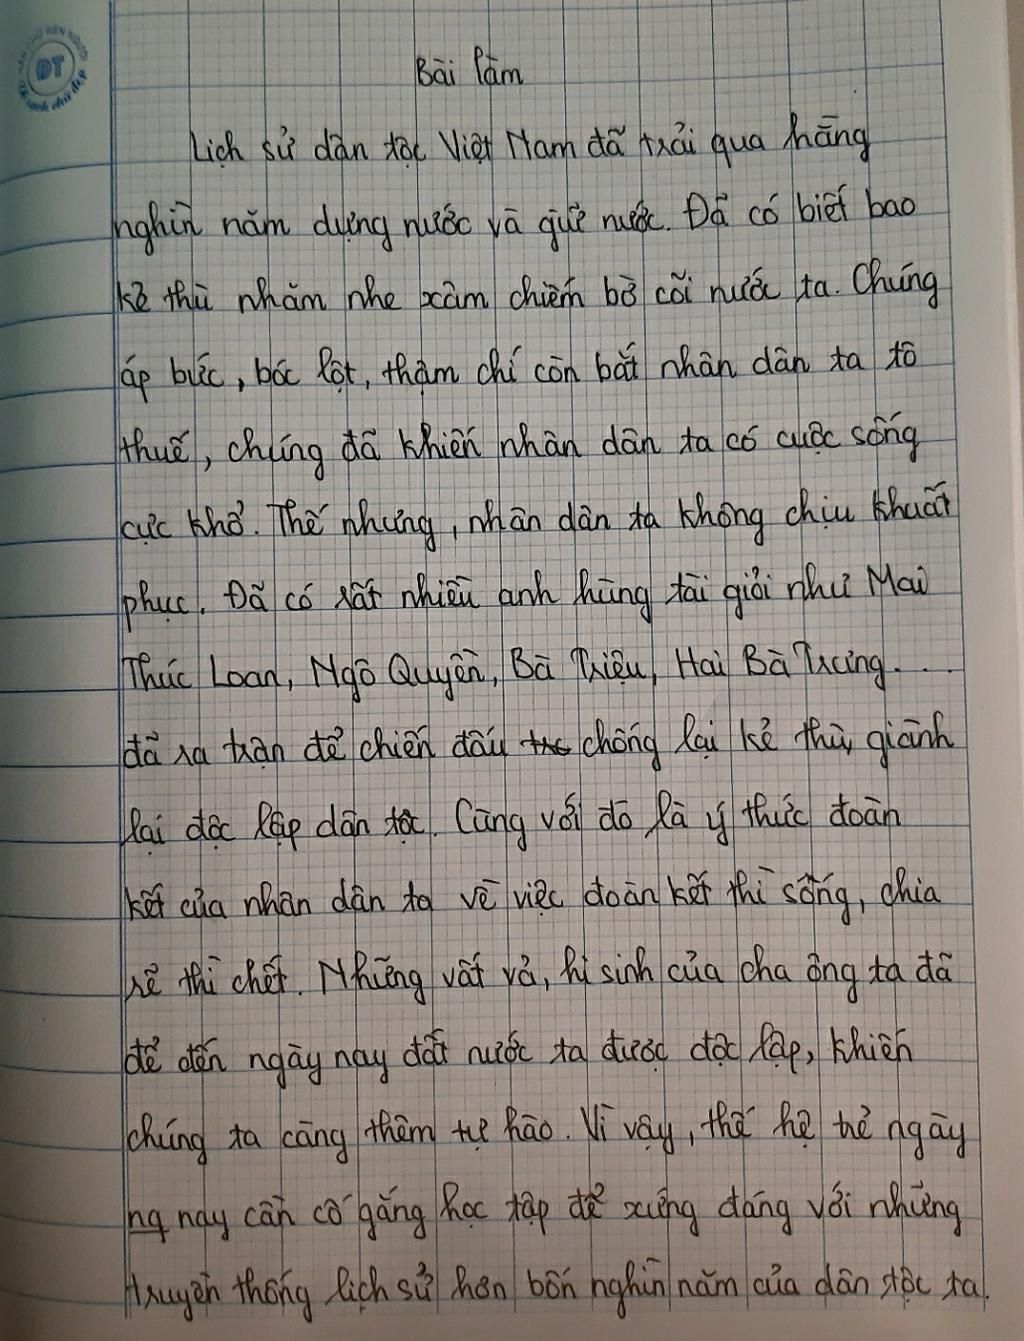 Bài làm
Lịch sử dân tộc Việt Nam đã trải qua hàng
nghìn năm dựng nước và giữ nước. Đã có biết bao
kẻ thù nhăm nhe xâm chiếm bờ cõi nước ta. Chúng
áp bức, bóc lột, thậm chí còn bắt nhân dân ta tô
thuế, chúng đã khiến nhân dân ta có cuộc sống
cực khổ. Thế nhưng, nhân dân ta không chịu khuất
phục. Đã có rất nhiều anh hùng tài giỏi như Mai
Thúc Loan, Ngô Quyền, Bà Triệu, Hai Bà Trưng...
đã ra trận để chiến đấu chống lại kẻ thù, giành
lại độc lập dân tộc. Cùng với đó là ý thức đoàn
kết của nhân dân ta về việc đoàn kết thì sống, chia
rẽ thì chết. Những vất vả, hi sinh của cha ông ta đã
để đến ngày nay đất nước ta được độc lập, khiến
chúng ta càng thêm tự hào. Vì vậy, thế hệ trẻ ngày
ng nay cần cố gắng học tập để xứng đáng với những
truyền thống lịch sử hơn bốn nghìn năm của dân tộc ta.
ĐT